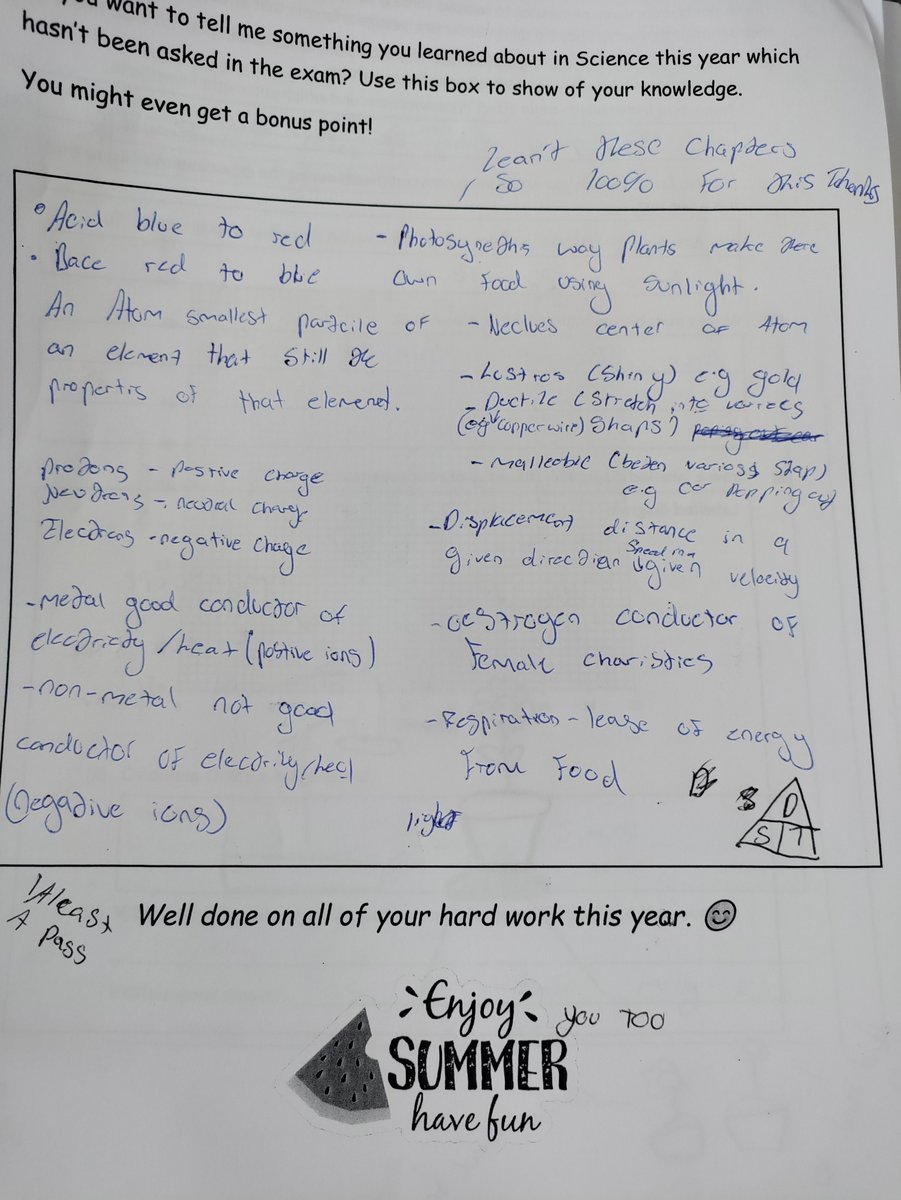 want to tell me something you learned about in Science this year which
hasn't been asked in the exam? Use this box to show of your knowledge.
You might even get a bonus point!
Lean't these Chapters
So 100% For this Thenks
• Acid blue to red
• Bace red to blue
An Atom smallest partcile of
an element that still
propertis of that elemenet.
Protons - postive charge
Neutrons - neutral charge
Electrons - negative charge
- metal good conductor of
electricty /heat (postive ions)
- non-metal not good
conductor of electrity/heat
(negative ions)
- Photosyneths way Plants make there
own food using sunlight.
- Neclues center of Atom
- Lustros (Shiny) e.g gold
- Ductile (Stretch into varices
(eg copper wire) Shaps)
- Malleable (beten various Shap)
e.g car
- Displacement distance in a
given direction Speed in a given velocity
- oestrogen conductor of
Female charistics
- Respiration - lease of energy
From Food
light
D
S T
Aleast
A Pass
Well done on all of your hard work this year.
Enjoy
YOU TOO
SUMMER
have fun